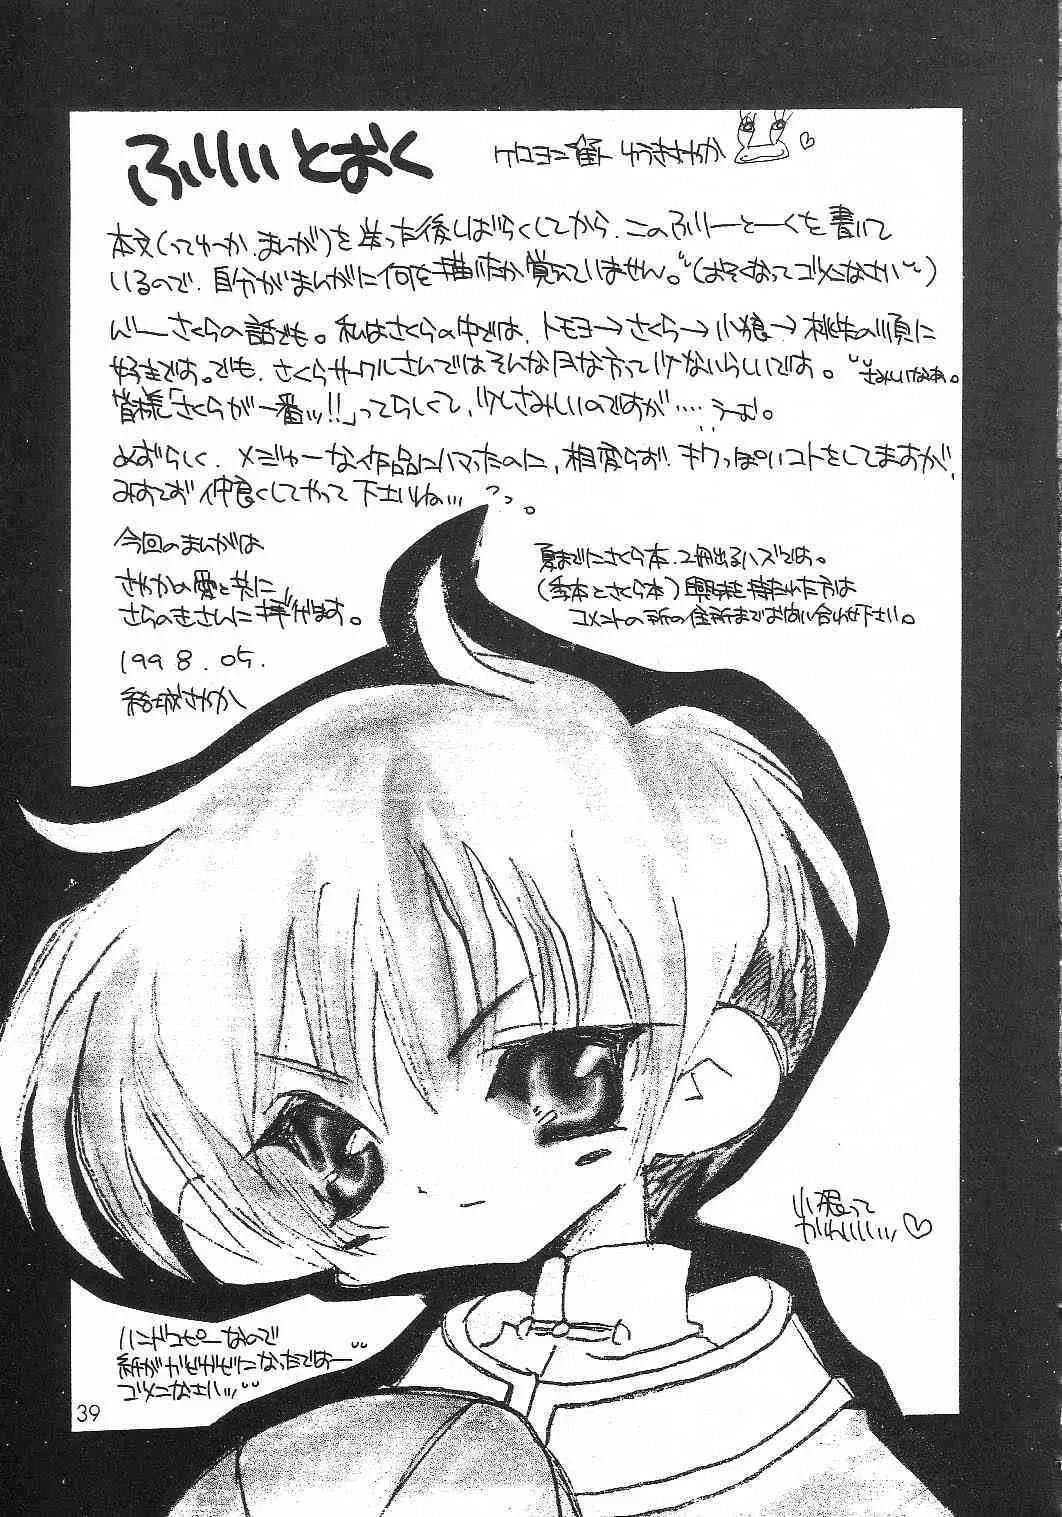 ふりぃとおく
ケロヨン
本文(ってゆーか、まんが)を送った後しばらくしてから、このふりーとーくを書いて
いるので、自分がまんがに何を描いたか覚えていません。(おそくなってゴメンなさい)
んー さくらの話でも。私はさくらの中では、トモヨ→さくら→小狼→桃矢の順に
好きです。でも、さくらサークルさんではそんな方って少ないらしいです。さみしいなあ。
皆様「さくらが一番ッ!!」ってらしくて、少しさみしいのですが‥‥うーむ。
めずらしく、メジャーな作品にハマったのに、相変らず、キワっぽいコトをしてますが、
みすてず仲良くしてやって下さいね…。
今回のまんがは
さやかの愛と共に
さらのきさんに捧げます。
1998.05.
結城さやか
夏までにさくら本、2冊出るハズです。
(季本とさくら本)興味を持たれた方は
コメントの所の住所までお問い合わせ下さい。
小狼って
かわいいい♡
ハンドコピーなので
紙がガビガビになったでは
ゴメンなさい
39